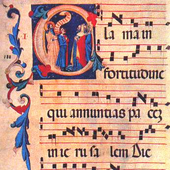 Cla ma in
fortitudine
qui annuntias pa cez
in ie ru sa lem Dic